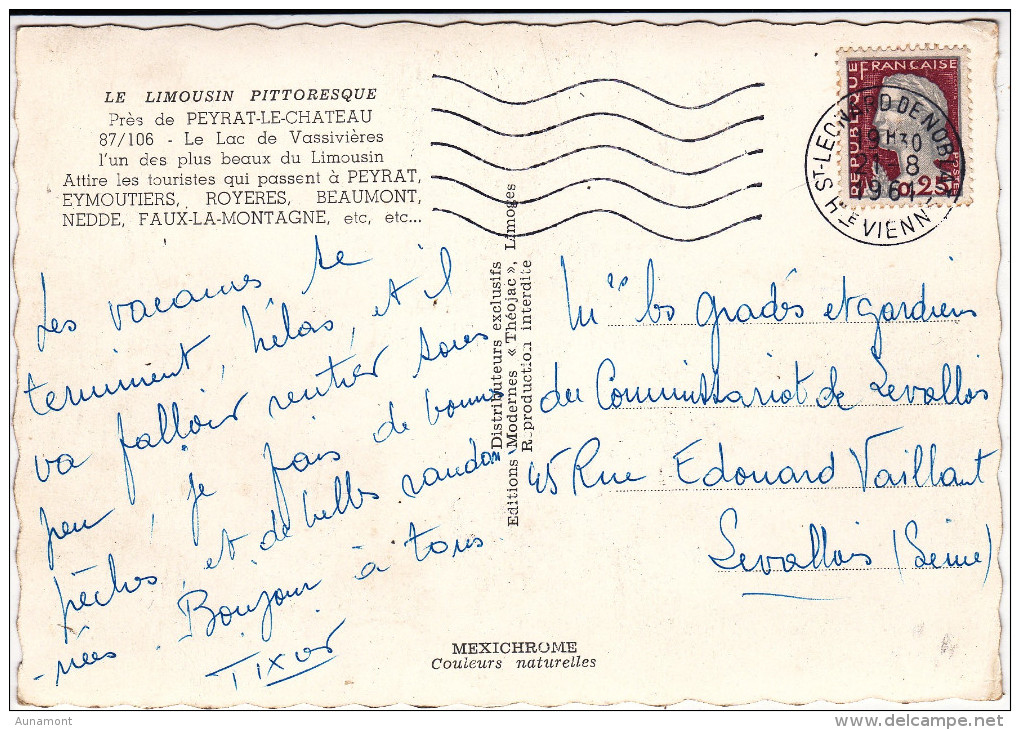 LE LIMOUSIN PITTORESQUE
Près de PEYRAT-LE-CHATEAU
87/106 - Le Lac de Vassivières
l'un des plus beaux du Limousin
Attire les touristes qui passent à PEYRAT,
EYMOUTIERS, ROYERES, BEAUMONT,
NEDDE, FAUX-LA-MONTAGNE, etc, etc...
Les vacances se
terminent, hélas, et il
va falloir rentrer sous
peu, je fais de bonnes
pêches, et de belles randon
-nées. Bonjour à tous
Tixier
Distributeurs exclusifs
Editions Modernes « Théojac », Limoges
R-production interdite
REPUBLIQUE FRANÇAISE
POSTES
0,25
ST-LEONARD DE NOBLAT
9H30
21-8
196
HTE VIENNE
Mrs les gradés et gardiens
du Commissariat de Levallois
45 Rue Edouard Vaillant
Levallois (Seine)
MEXICHROME
Couleurs naturelles
Aunamont
delcampe.net